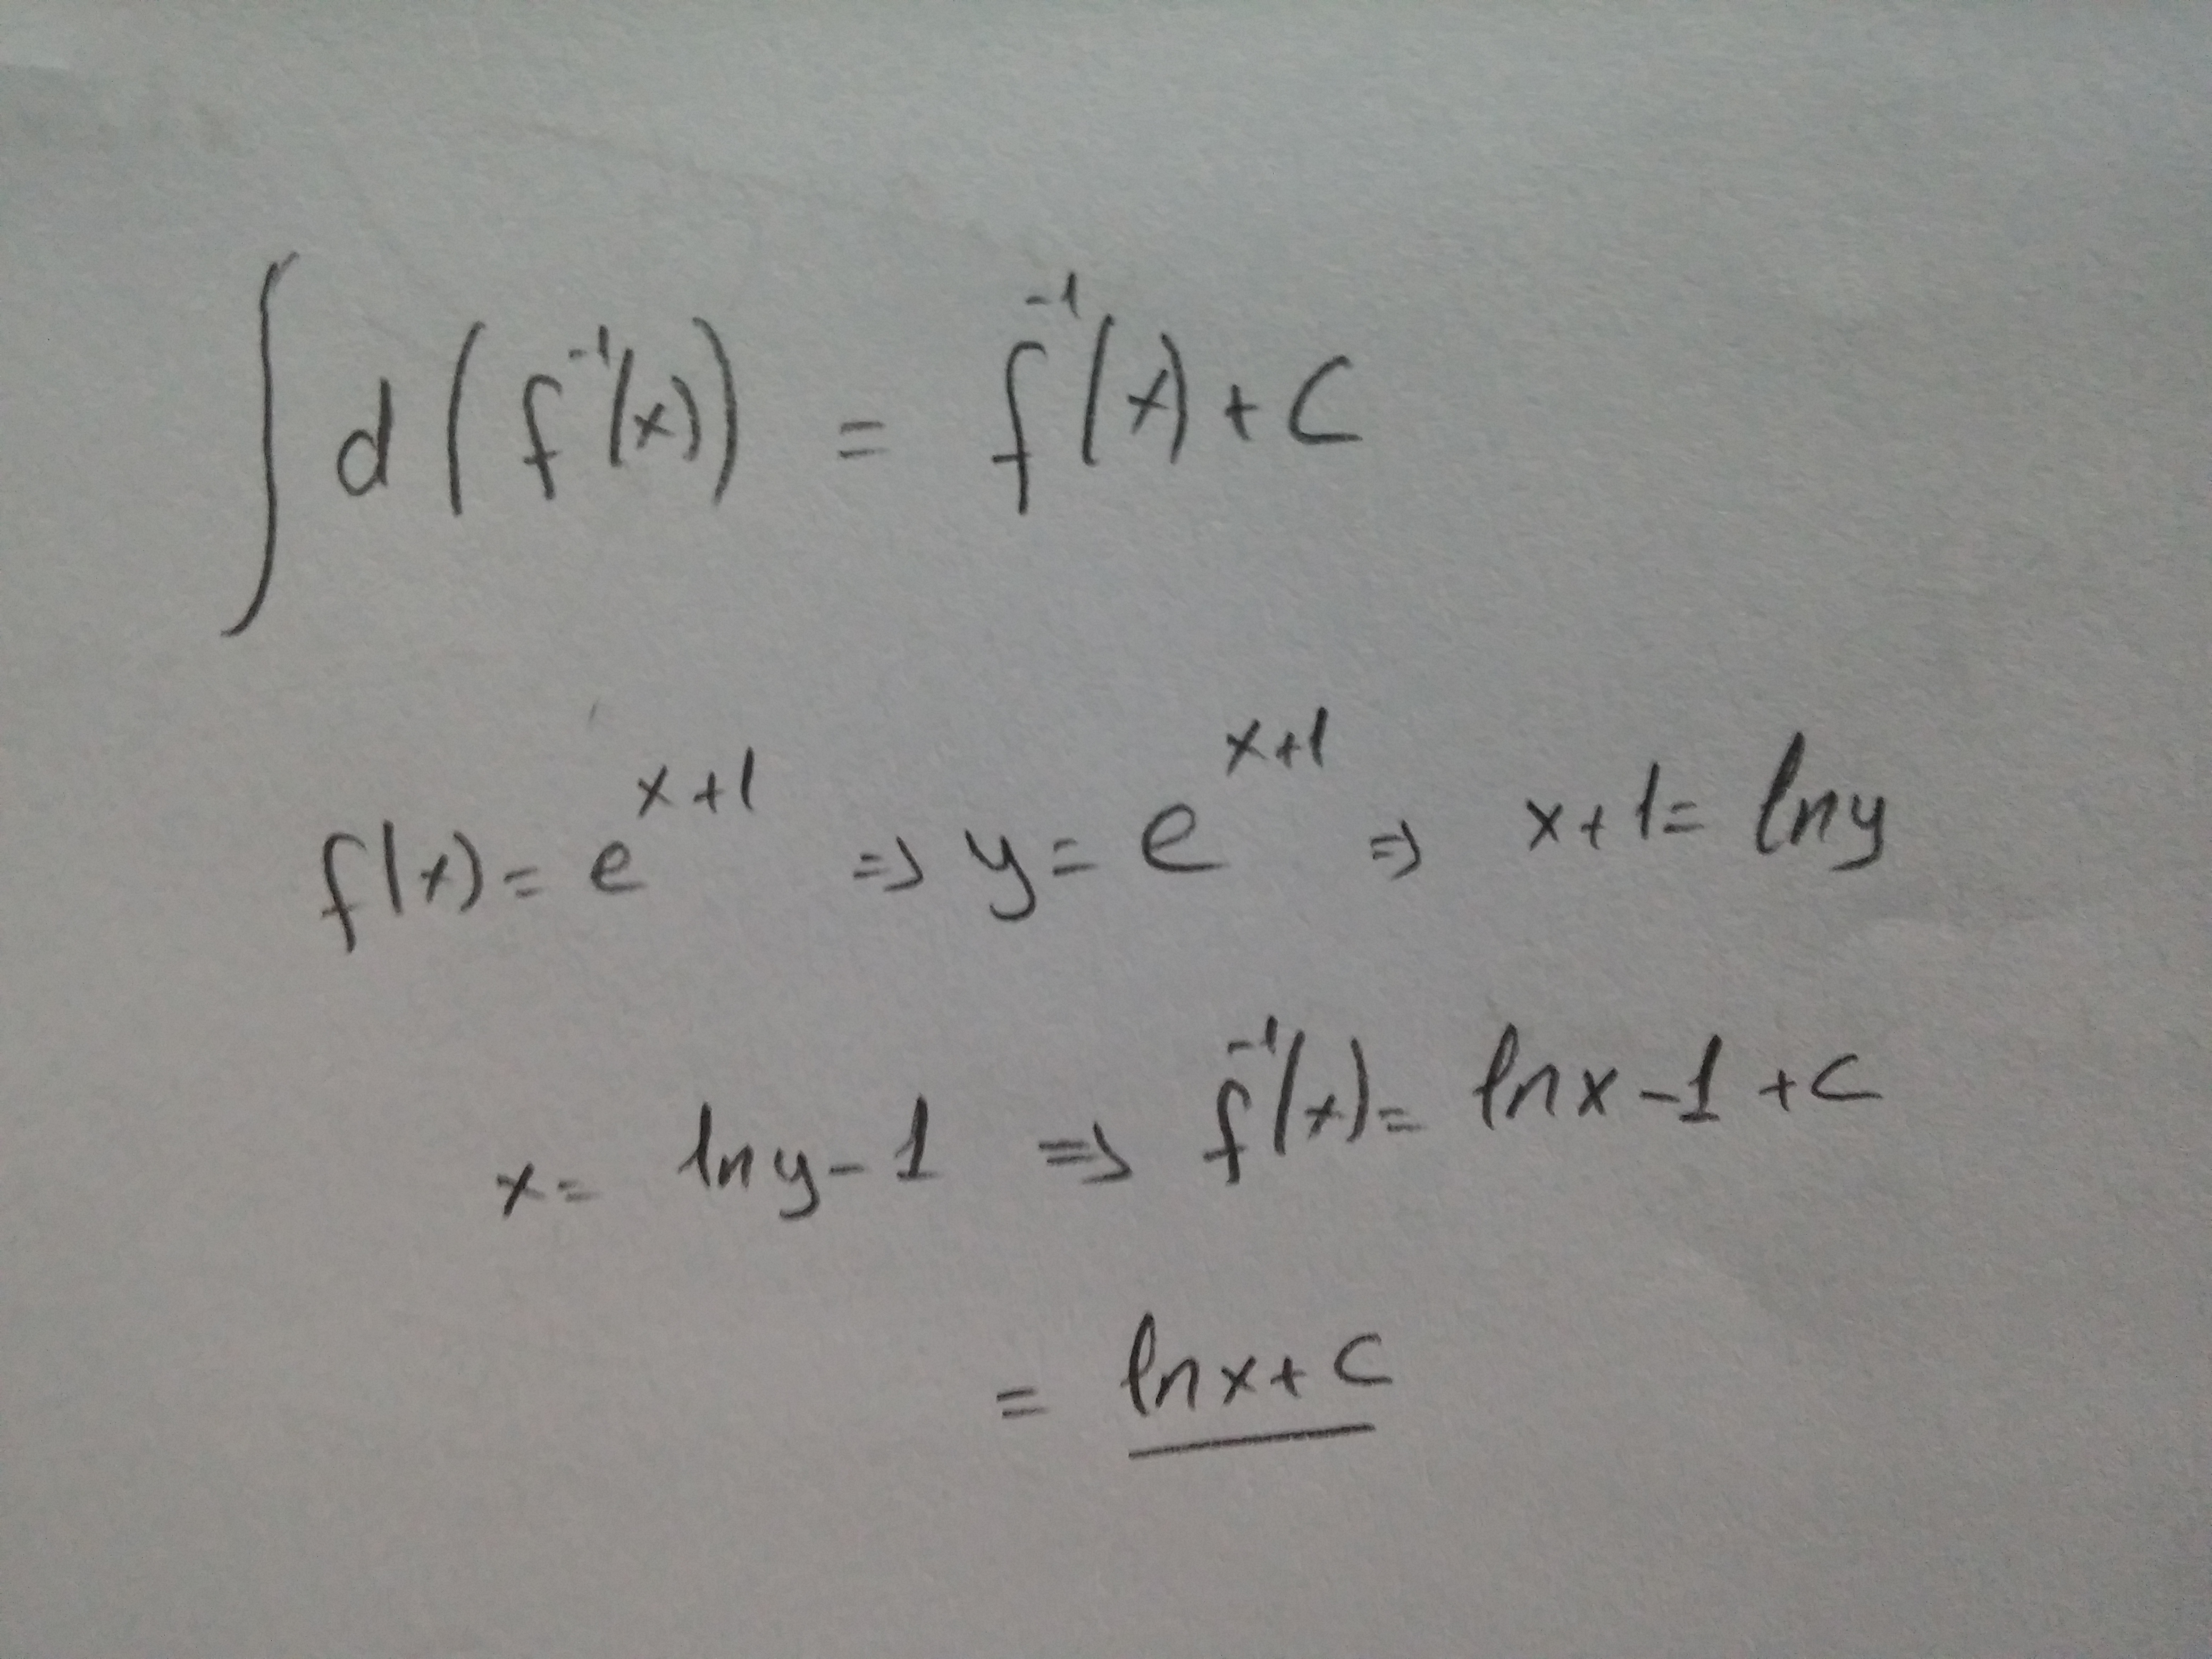 ∫ d(f⁻¹(x)) = f⁻¹(x) + C
f(x) = e^(x+1) ⇒ y = e^(x+1) ⇒ x+1 = ln y
x = ln y - 1 ⇒ f⁻¹(x) = ln x - 1 + C
= ln x + C